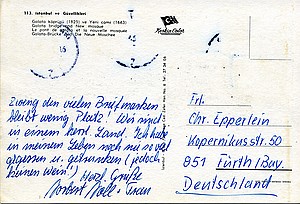 113. Istanbul ve Güzellikleri
Galata köprüsü (1825) ve Yeni cami (1663)
Galata bridge and New mosque
Le pont de Galata et la nouvelle mosquée
Galata-Brücke und Die Neue Moschee
Keskin Color
Zwecks den vielen Briefmarken
bleibt wenig Platz! Wir sind
in einem herrl. Land. Ich habe
in meinem Leben noch nie so viel
gegessen u. getrunken (jedoch
keinen Wein!) Herzl. Grüße
Norbert
Frl.
Chr. Epperlein
Kopernikusstr. 50
851 Fürth/Bay.
Deutschland